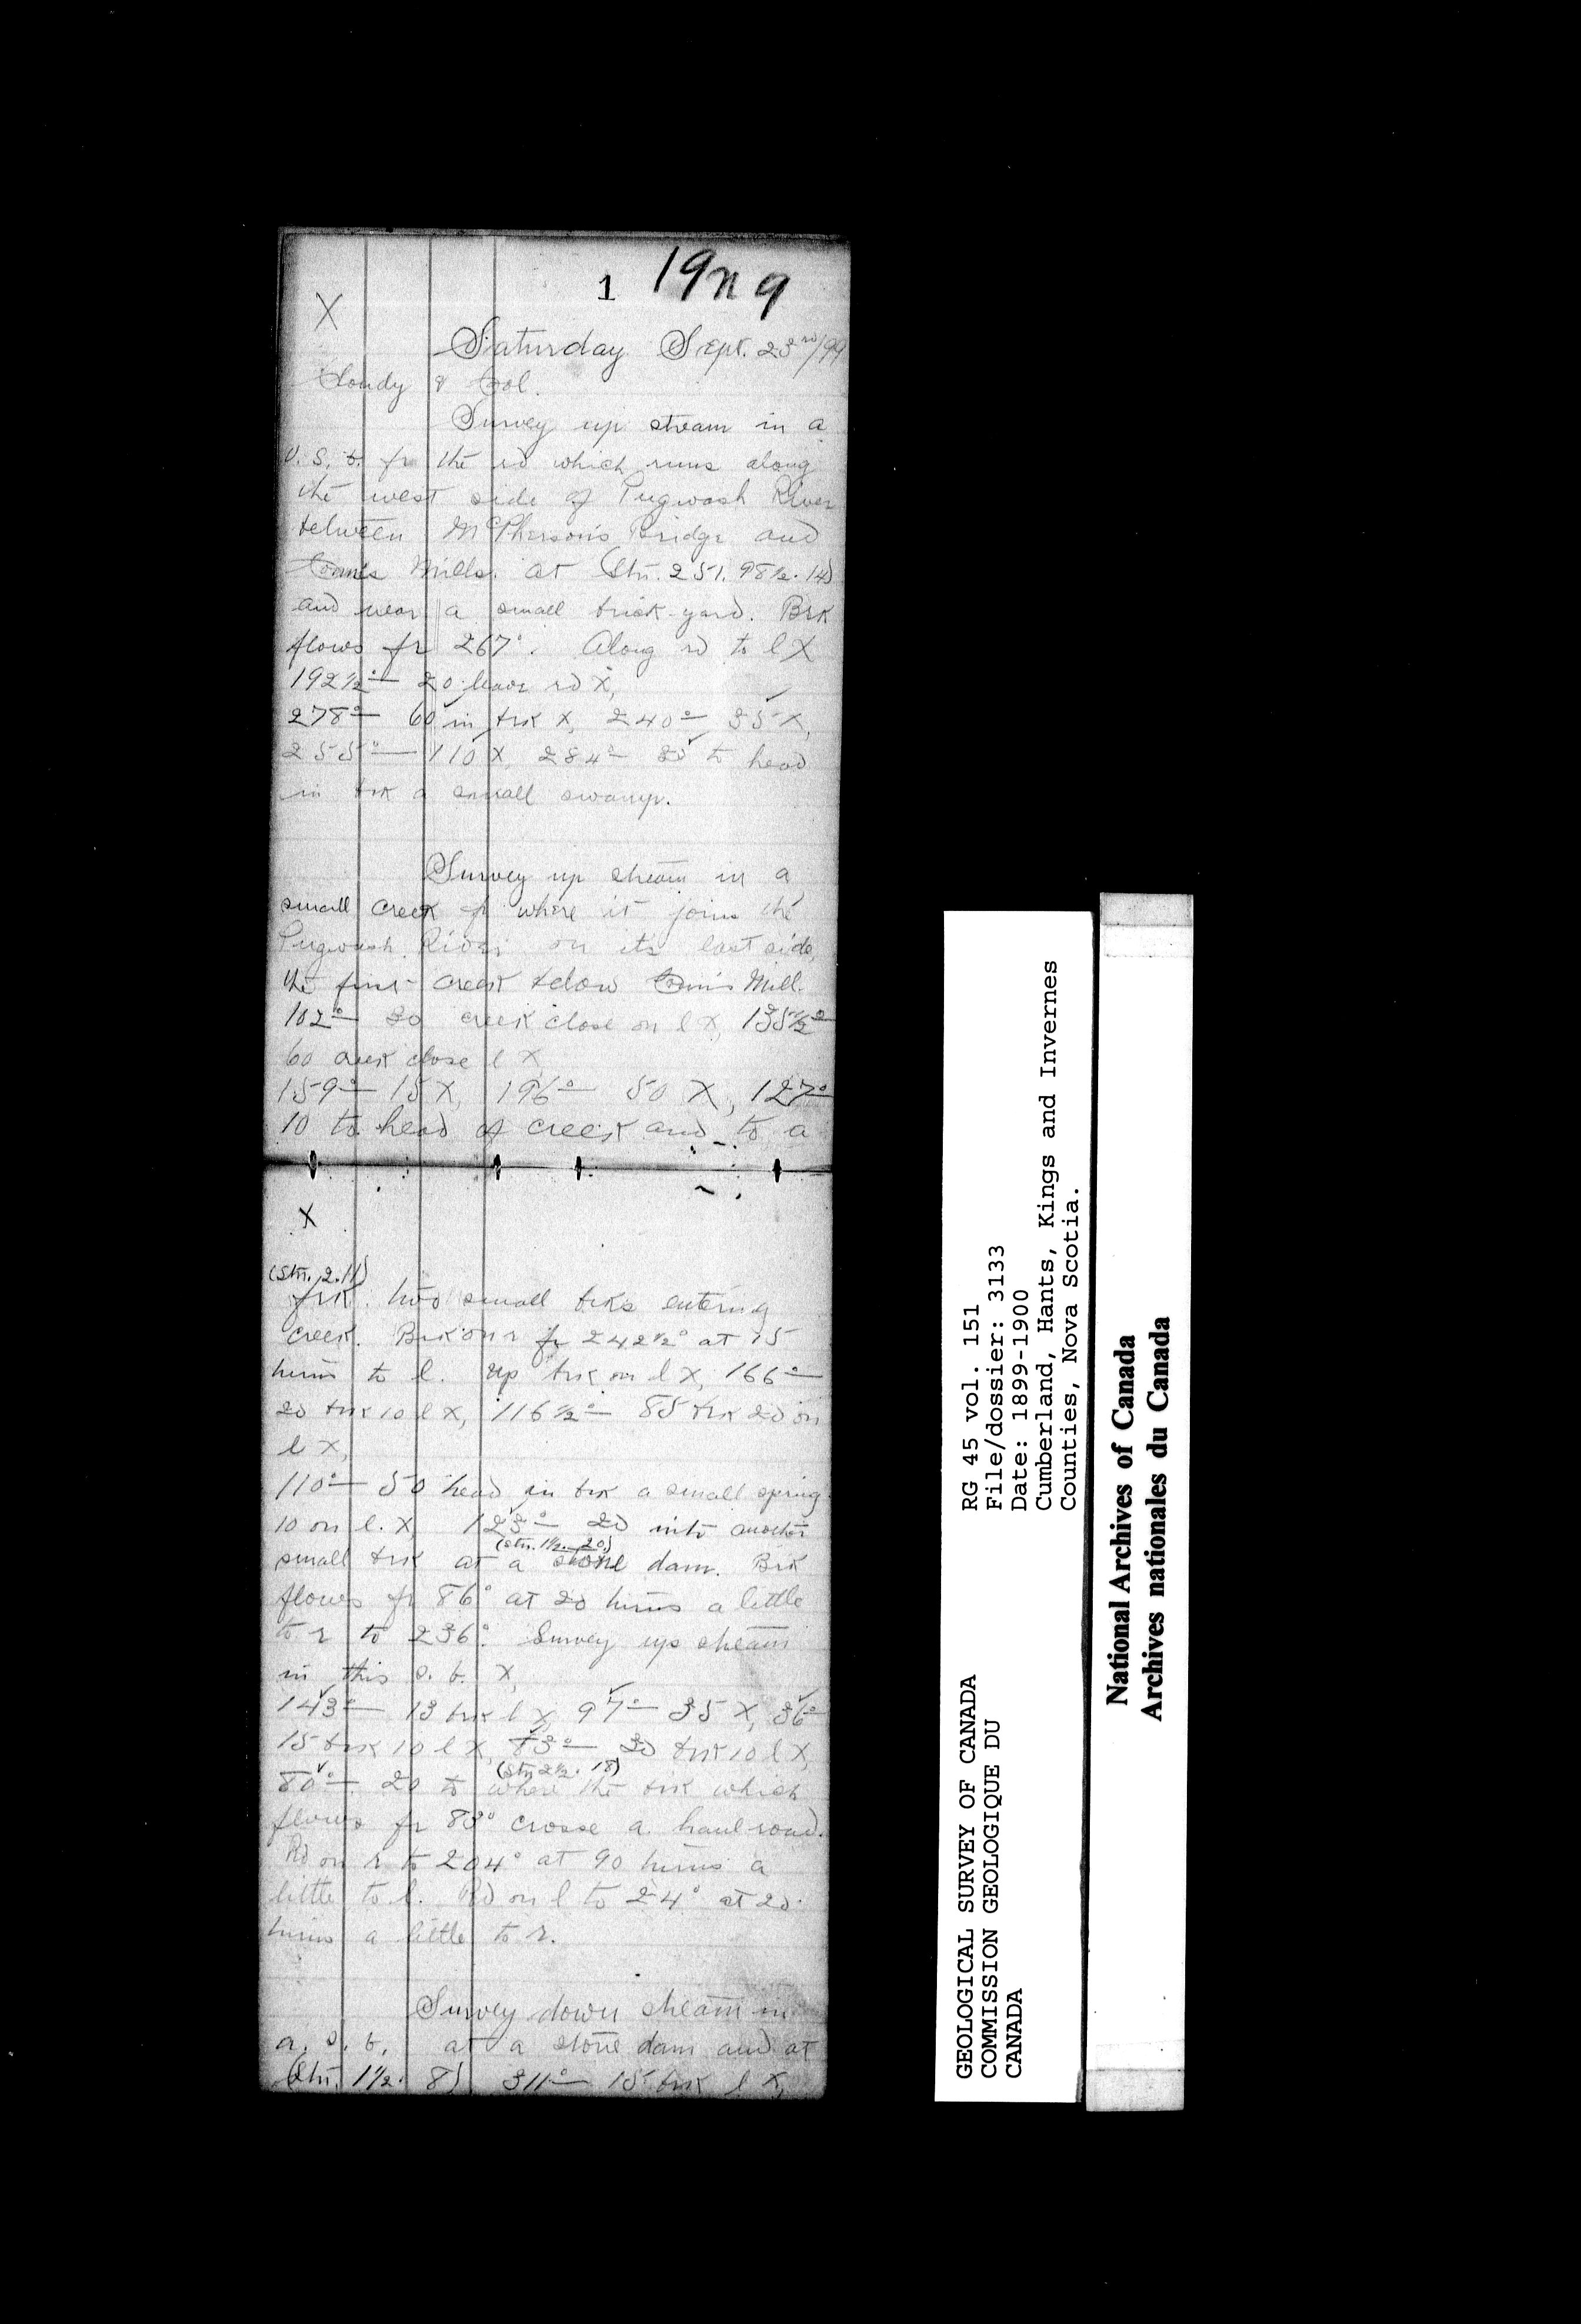 1 19n9
X
Saturday Sept. 23rd/99
Cloudy & Cool.
Survey up stream in a
v. s. b. fr the rd which runs along
the west side of Pugwash River
between McPherson's Bridge and
Mills. at (Stn. 251. 98½. 14)
and near a small brick-yard. Brk
flows fr 267°. Along rd to l X
192½°— 20 leave rd X,
278°— 60 in brk X, 240°— 35 X,
255°— 110 X, 284°— 20 to head
in brk a small swamp.
Survey up stream in a
small creek fr where it joins the
Pugwash River on its east side,
the first creek below Mill.
102°— 30 creek close on l X, 135½°—
60 creek close l X
159°— 15 X, 196°— 50 X, 127°—
10 to head of creek and to a
X
(Stn. 2. 11)
frk. two small brks entering
creek. Brk on r fr 242½° at 15
turns to l. Up brk on l X, 166°—
20 brk 10 l X, 116½°— 85 brk 20 on
l X,
110°— 50 head in brk a small spring
10 on l. X 123°— 20 into another
(Stn. 1½. 20)
small brk at a stone dam. Brk
flows fr 86° at 20 turns a little
to r to 236°. Survey up stream
in this s. b. X,
143°— 13 brk l X, 97°— 35 X, 36°—
15 brk 10 l X, 83°— 30 brk 10 l X,
(Stn 2½. 18)
80°— 20 to where the brk which
flows fr 83° cross a haul road.
Rd on r to 204° at 90 turns a
little to l. Rd on l to 24° at 20
turns a little to r.
Survey down stream in
a. s. b. at a stone dam and at
(Stn. 1½. 8) 311°— 15 brk l X,
GEOLOGICAL SURVEY OF CANADA
COMMISSION GEOLOGIQUE DU
CANADA
RG 45 vol. 151
File/dossier: 3133
Date: 1899-1900
Cumberland, Hants, Kings and Invernes
Counties, Nova Scotia.
National Archives of Canada
Archives nationales du Canada